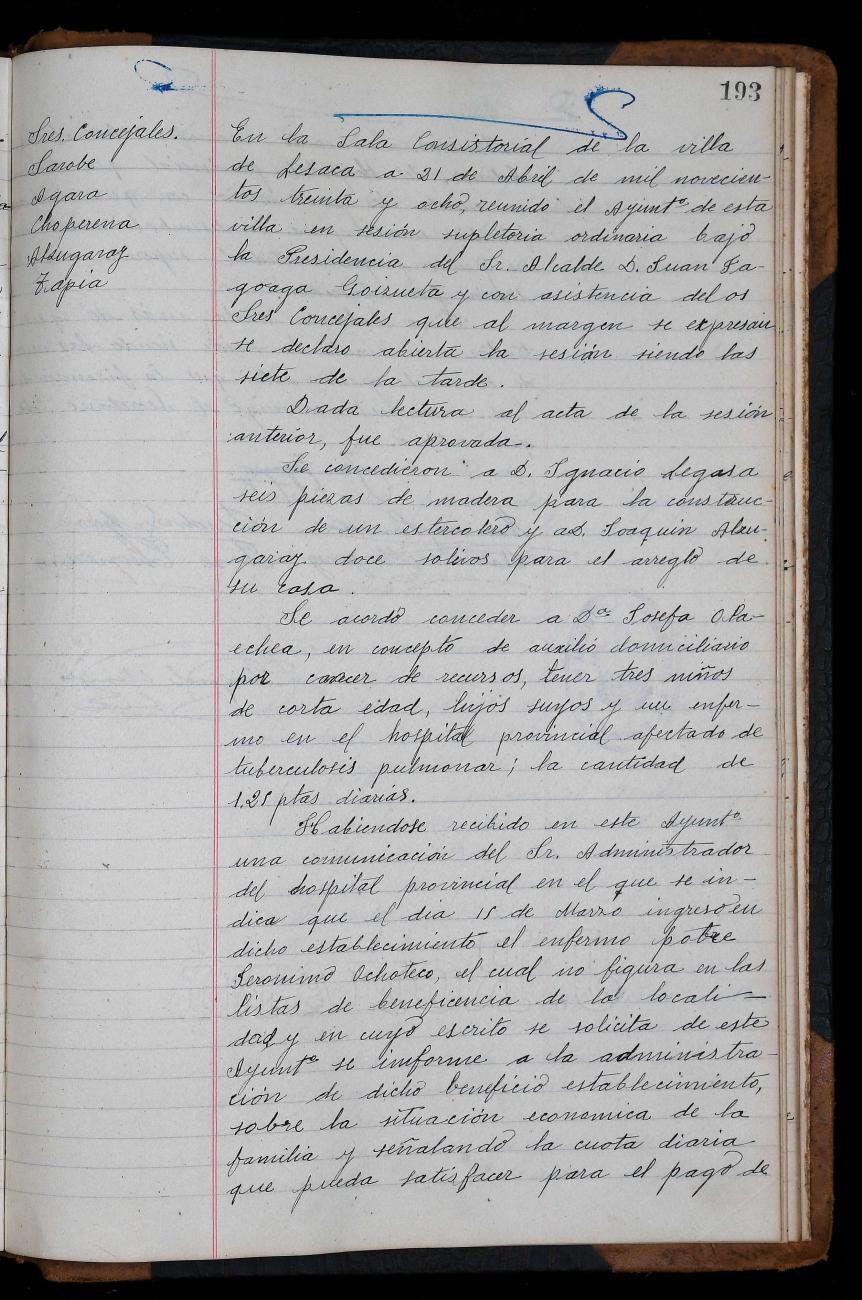 193
Sres. Concejales.
Sarobe
Agara
Choperena
Alzugaray
Tapia
En la Sala Consistorial de la villa
de Lesaca a 21 de Abril de mil novecien-
tos treinta y ocho, reunido el Ayuntº de esta
villa en sesión supletoria ordinaria bajo
la Presidencia del Sr. Alcalde D. Juan Fa-
goaga Goizueta y con asistencia del os
Sres Concejales que al margen se expresan
se declaro abierta la sesión siendo las
siete de la tarde.
Dada lectura al acta de la sesión
anterior, fue aprovada.
Se concedieron a D. Ignacio Legasa
seis piezas de madera para la construc-
ción de un estercolero y a D. Joaquin Alzu-
garay doce solivos para el arreglo de
su casa.
Se acordó conceder a Dª Josefa Ola-
echea, en concepto de auxilio domiciliario
por carecer de recursos, tener tres niños
de corta edad, hijos suyos y un enfer-
mo en el hospital provincial afectado de
tuberculosis pulmonar; la cantidad de
1.25 ptas diarias.
Habiendose recibido en este Ayuntº
una comunicación del Sr. Administrador
del hospital provincial en el que se in-
dica que el dia 15 de Marzo ingreso en
dicho establecimiento el enfermo pobre
Jeronimo Ochoteco, el cual no figura en las
listas de beneficencia de la locali-
dad y en cuyo escrito se solicita de este
Ayuntº se imforme a la administra-
ción de dicho beneficio establecimiento,
sobre la situación economica de la
familia y señalando la cuota diaria
que pueda satisfacer para el pago de